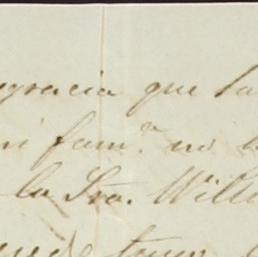 gracia que la
mi fam.ª no
la Sra. Will
tener